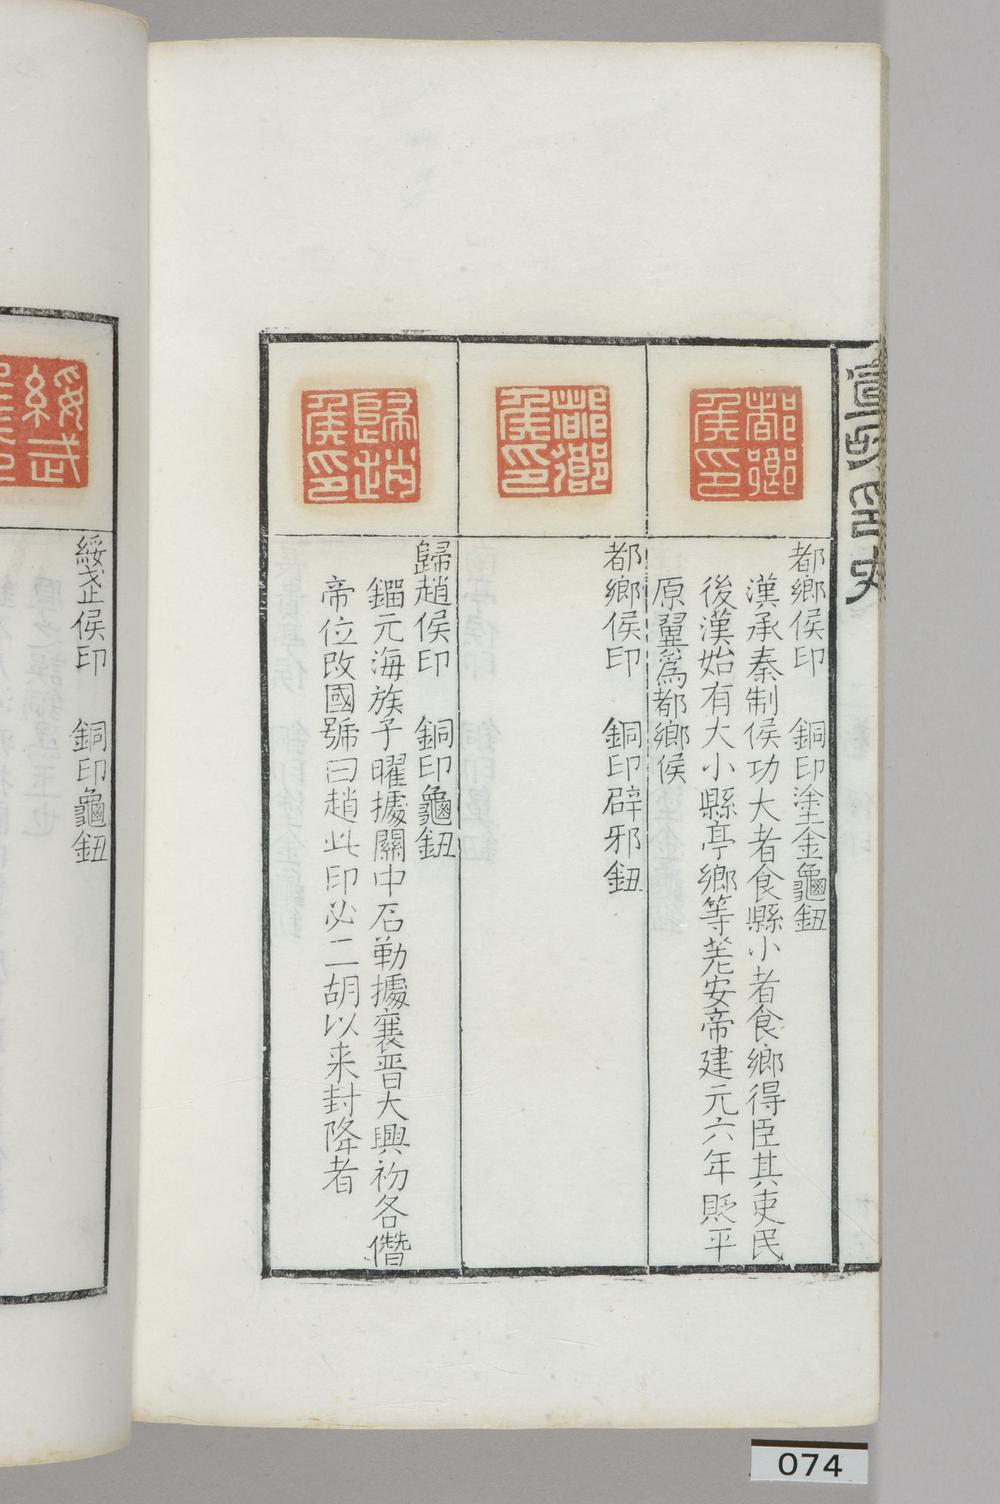 宣和印史
都鄉侯印
都鄉侯印　銅印塗金龜鈕
漢承秦制侯功大者食縣小者食鄉得臣其吏民
後漢始有大小縣亭鄉等差安帝建元六年貶平
原翼為都鄉侯
都鄉侯印
都鄉侯印　銅印辟邪鈕
歸趙侯印
歸趙侯印　銅印龜鈕
鐂元海族子曜據關中石勒據襄晉大興初各僭
帝位改國號曰趙此印必二胡以来封降者
綏武侯印
綏武侯印　銅印龜鈕
074